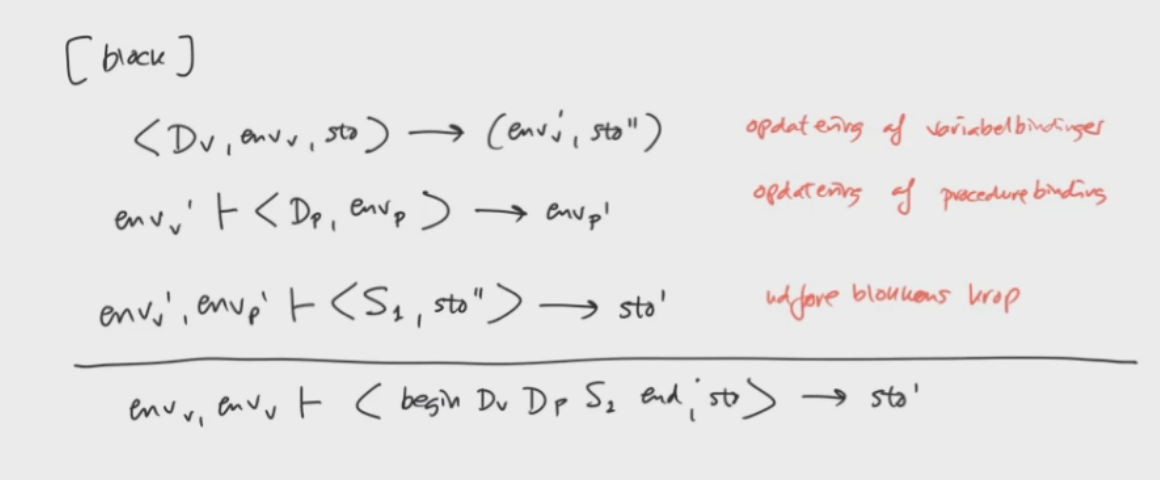 [block]
<D_v, env_v, sto> → (env_v', sto") opdatering af variabelbindinger
env_v' ⊢ <D_p, env_p> → env_p' opdatering af procedurebinding
env_v', env_p' ⊢ <S_1, sto"> → sto' udføre blokkens krop
env_v, env_v ⊢ <begin D_v D_p S_2 end, sto> → sto'